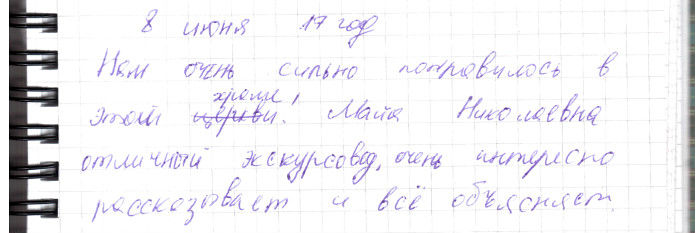 8 июня 17 год
Нам очень сильно понравилось в
храме!
этой церкви! Майа Николаевна
отличный экскурсовод, очень интересно
рассказывает и всё объясняет.